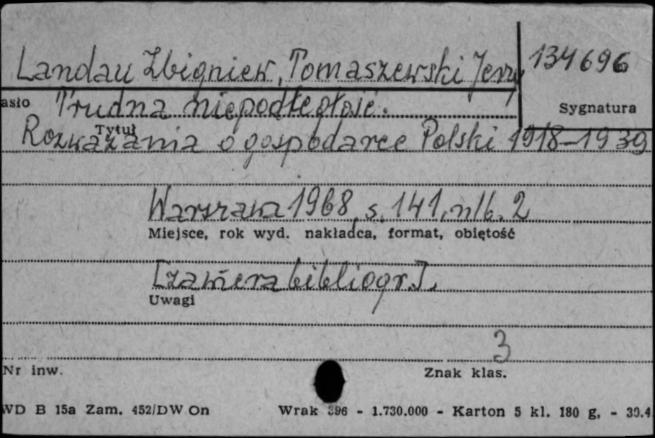 Landau Zbigniew, Tomaszewski Jerzy
134696
asło
Trudna niepodległość.
Sygnatura
Tytuł
Rozważania o gospodarce Polski 1918-1939
Warszawa 1968, s. 141, nlb. 2
Miejsce, rok wyd. nakładca, format, objętość
[zawiera bibliogr.].
Uwagi
3
Nr inw.
Znak klas.
WD B 15a Zam. 452/DW On
Wrak 396 - 1.730.000 - Karton 5 kl. 180 g, - 30.4